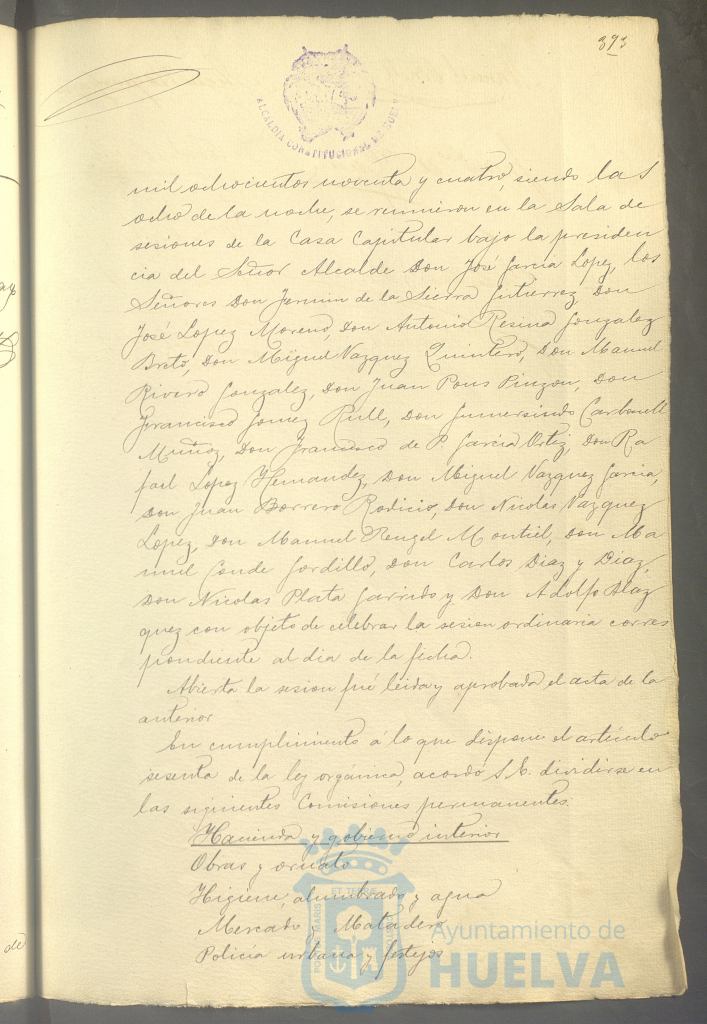 393
ALCALDIA CONSTITUCIONAL DE HUELVA
mil ochocientos noventa y cuatro, siendo las
ocho de la noche, se reunieron en la Sala de
sesiones de la Casa Capitular bajo la presiden
cia del Señor Alcalde Don José Garcia Lopez, los
Señores Don Fermin de la Sierra Gutierrez, Don
José Lopez Moreno, Don Antonio Resina Gonzalez
Breto, Don Miguel Vazquez Quintero, Don Manuel
Rivero Gonzalez, Don Juan Pons Pinzon, Don
Francisco Gomez Rull, Don Gumersindo Carbonell
Muñoz, Don Francisco de P. Garcia Ortiz, Don Ra
fael Lopez Hernandez, Don Miguel Vazquez Garcia,
Don Juan Borrero Rodicio, Don Nicolas Vazquez
Lopez, Don Manuel Rengel Montiel, Don Ma
nuel Conde Gordillo, Don Carlos Diaz y Diaz,
Don Nicolas Plata Garrido y Don Adolfo
quez con objeto de celebrar la sesion ordinaria corres
pondiente al dia de la fecha.
Abierta la sesion fué leida y aprobada el acta de la
anterior
En cumplimiento á lo que dispone el artículo
sesenta de la ley orgánica, acordó S.E. dividirse en
las siguientes Comisiones permanentes.
Hacienda y gobierno interior
Obras y ornato
Higiene, alumbrado y agua
Mercado y Matadero
Policía urbana y festejos
de
Ayuntamiento de
HUELVA